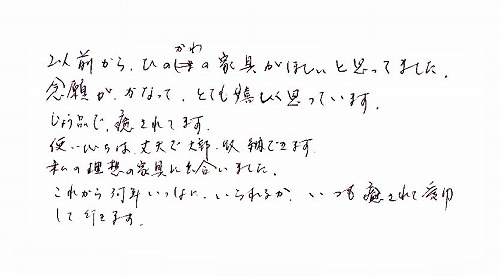 以前から、ひのかわの家具がほしいと思ってました。
念願が、かなって、とても嬉しく思っています。
じょう品で、癒されてます。
使いは、丈夫で大部、収納できます。
私の理想の家具に出合いました。
これから何年いっしょに、いられるか、いつも癒されて愛用
して行きます。